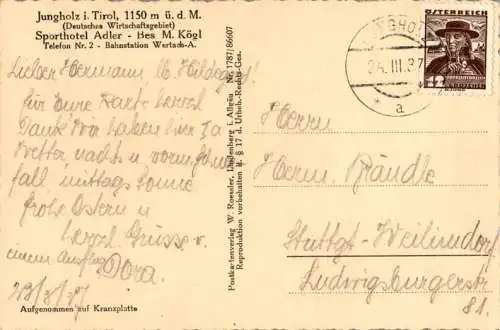 Jungholz i. Tirol, 1150 m ü. d. M.
(Deutsches Wirtschaftsgebiet)
Sporthotel Adler - Bes M. Kögl
Telefon Nr. 2 - Bahnstation Wertach-A.
Lieber Hermann u. Hildegard!
für Eure Karte herzl.
Dank. Wir haben hier Ia
Wetter, nachts u. vorm. Schnee
fall, mittags Sonne
Frohe Ostern u.
herzl. Grüsse v.
einem Ausflug Dora.
23/3/37
Aufgenommen auf Kranzplatte
Postkartenverlag W. Roessler, Lindenberg i. Allgäu Nr. 1787/86607
Reproduktion vorbehalten u. § 17 d. Urheb.-Rechts-Ges.
JUNGHOLZ
24. III. 37
a
ÖSTERREICH
12
Herrn
Herm. Brändle
Stuttgt-Weilimdorf
Ludwigsburgerstr
81.